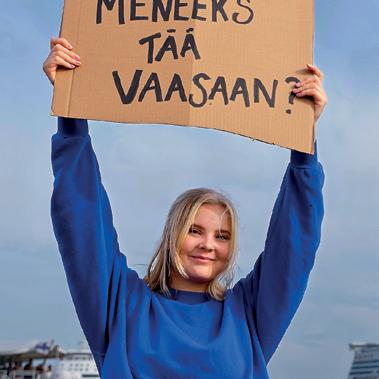 MENEEKS
TÄÄ
VAASAAN?